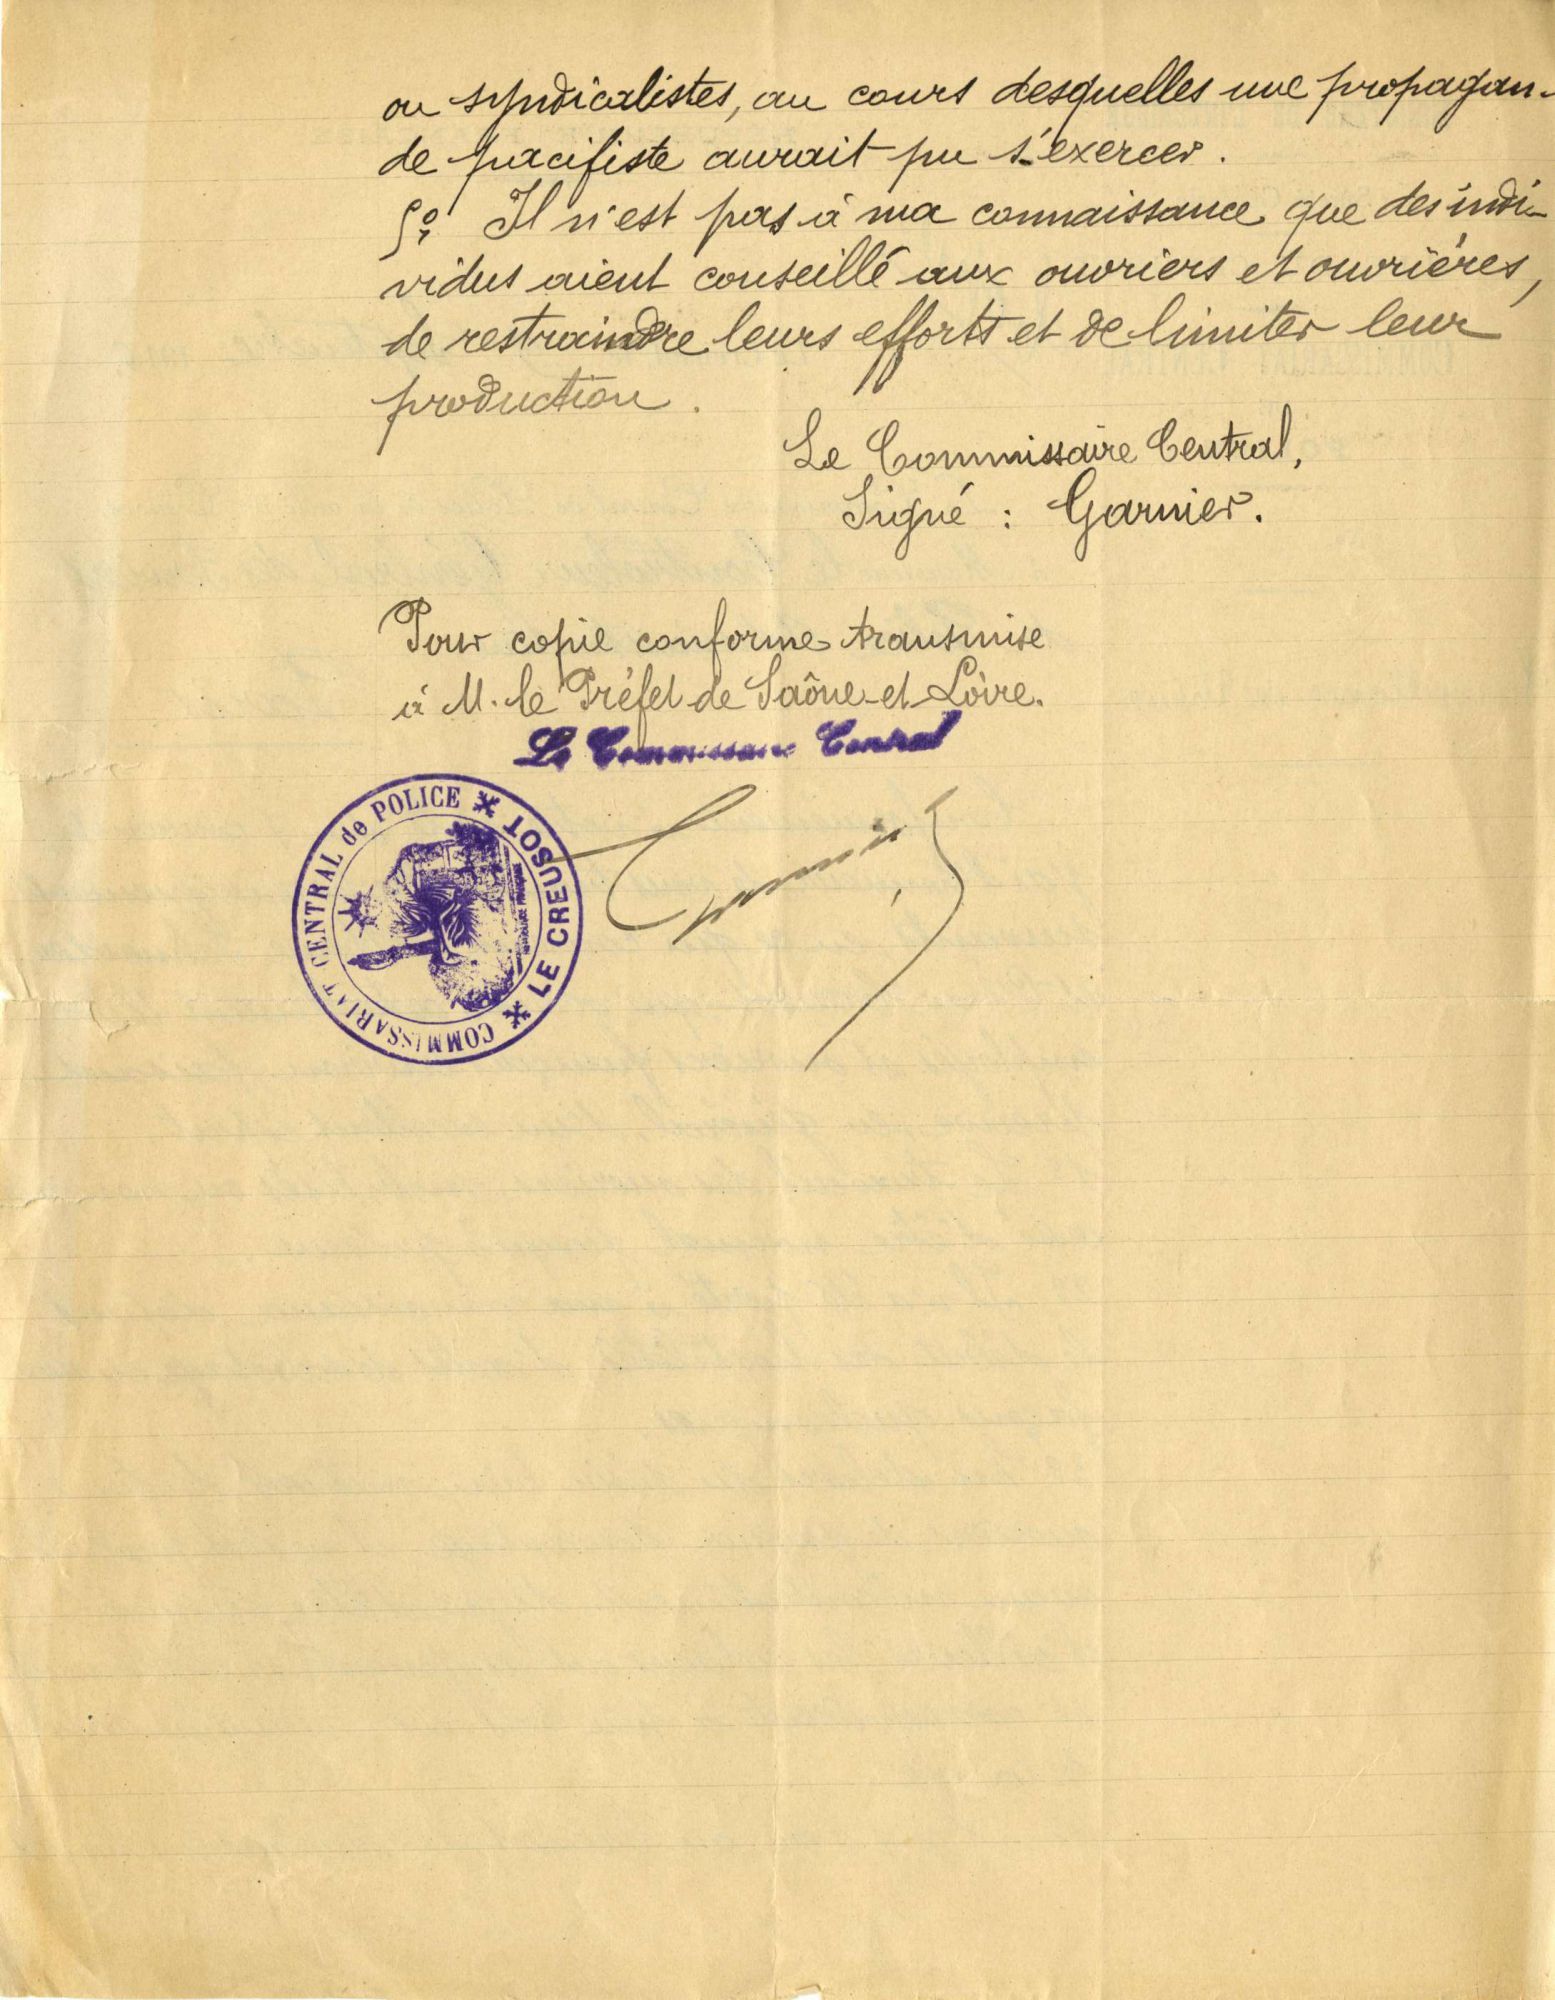 ou syndicalistes, au cours desquelles une propagan-
de pacifiste aurait pu s'exercer.
5°, Il n'est pas à ma connaissance que des indi-
vidus aient conseillé aux ouvriers et ouvrières,
de restraindre leurs efforts et de limiter leur
production.
Le Commissaire Central,
Signé : Garnier.
Pour copie conforme transmise
à M. le Préfet de Saône-et-Loire.
Le Commissaire Central
Garnier
COMMISSARIAT CENTRAL de POLICE
LE CREUSOT